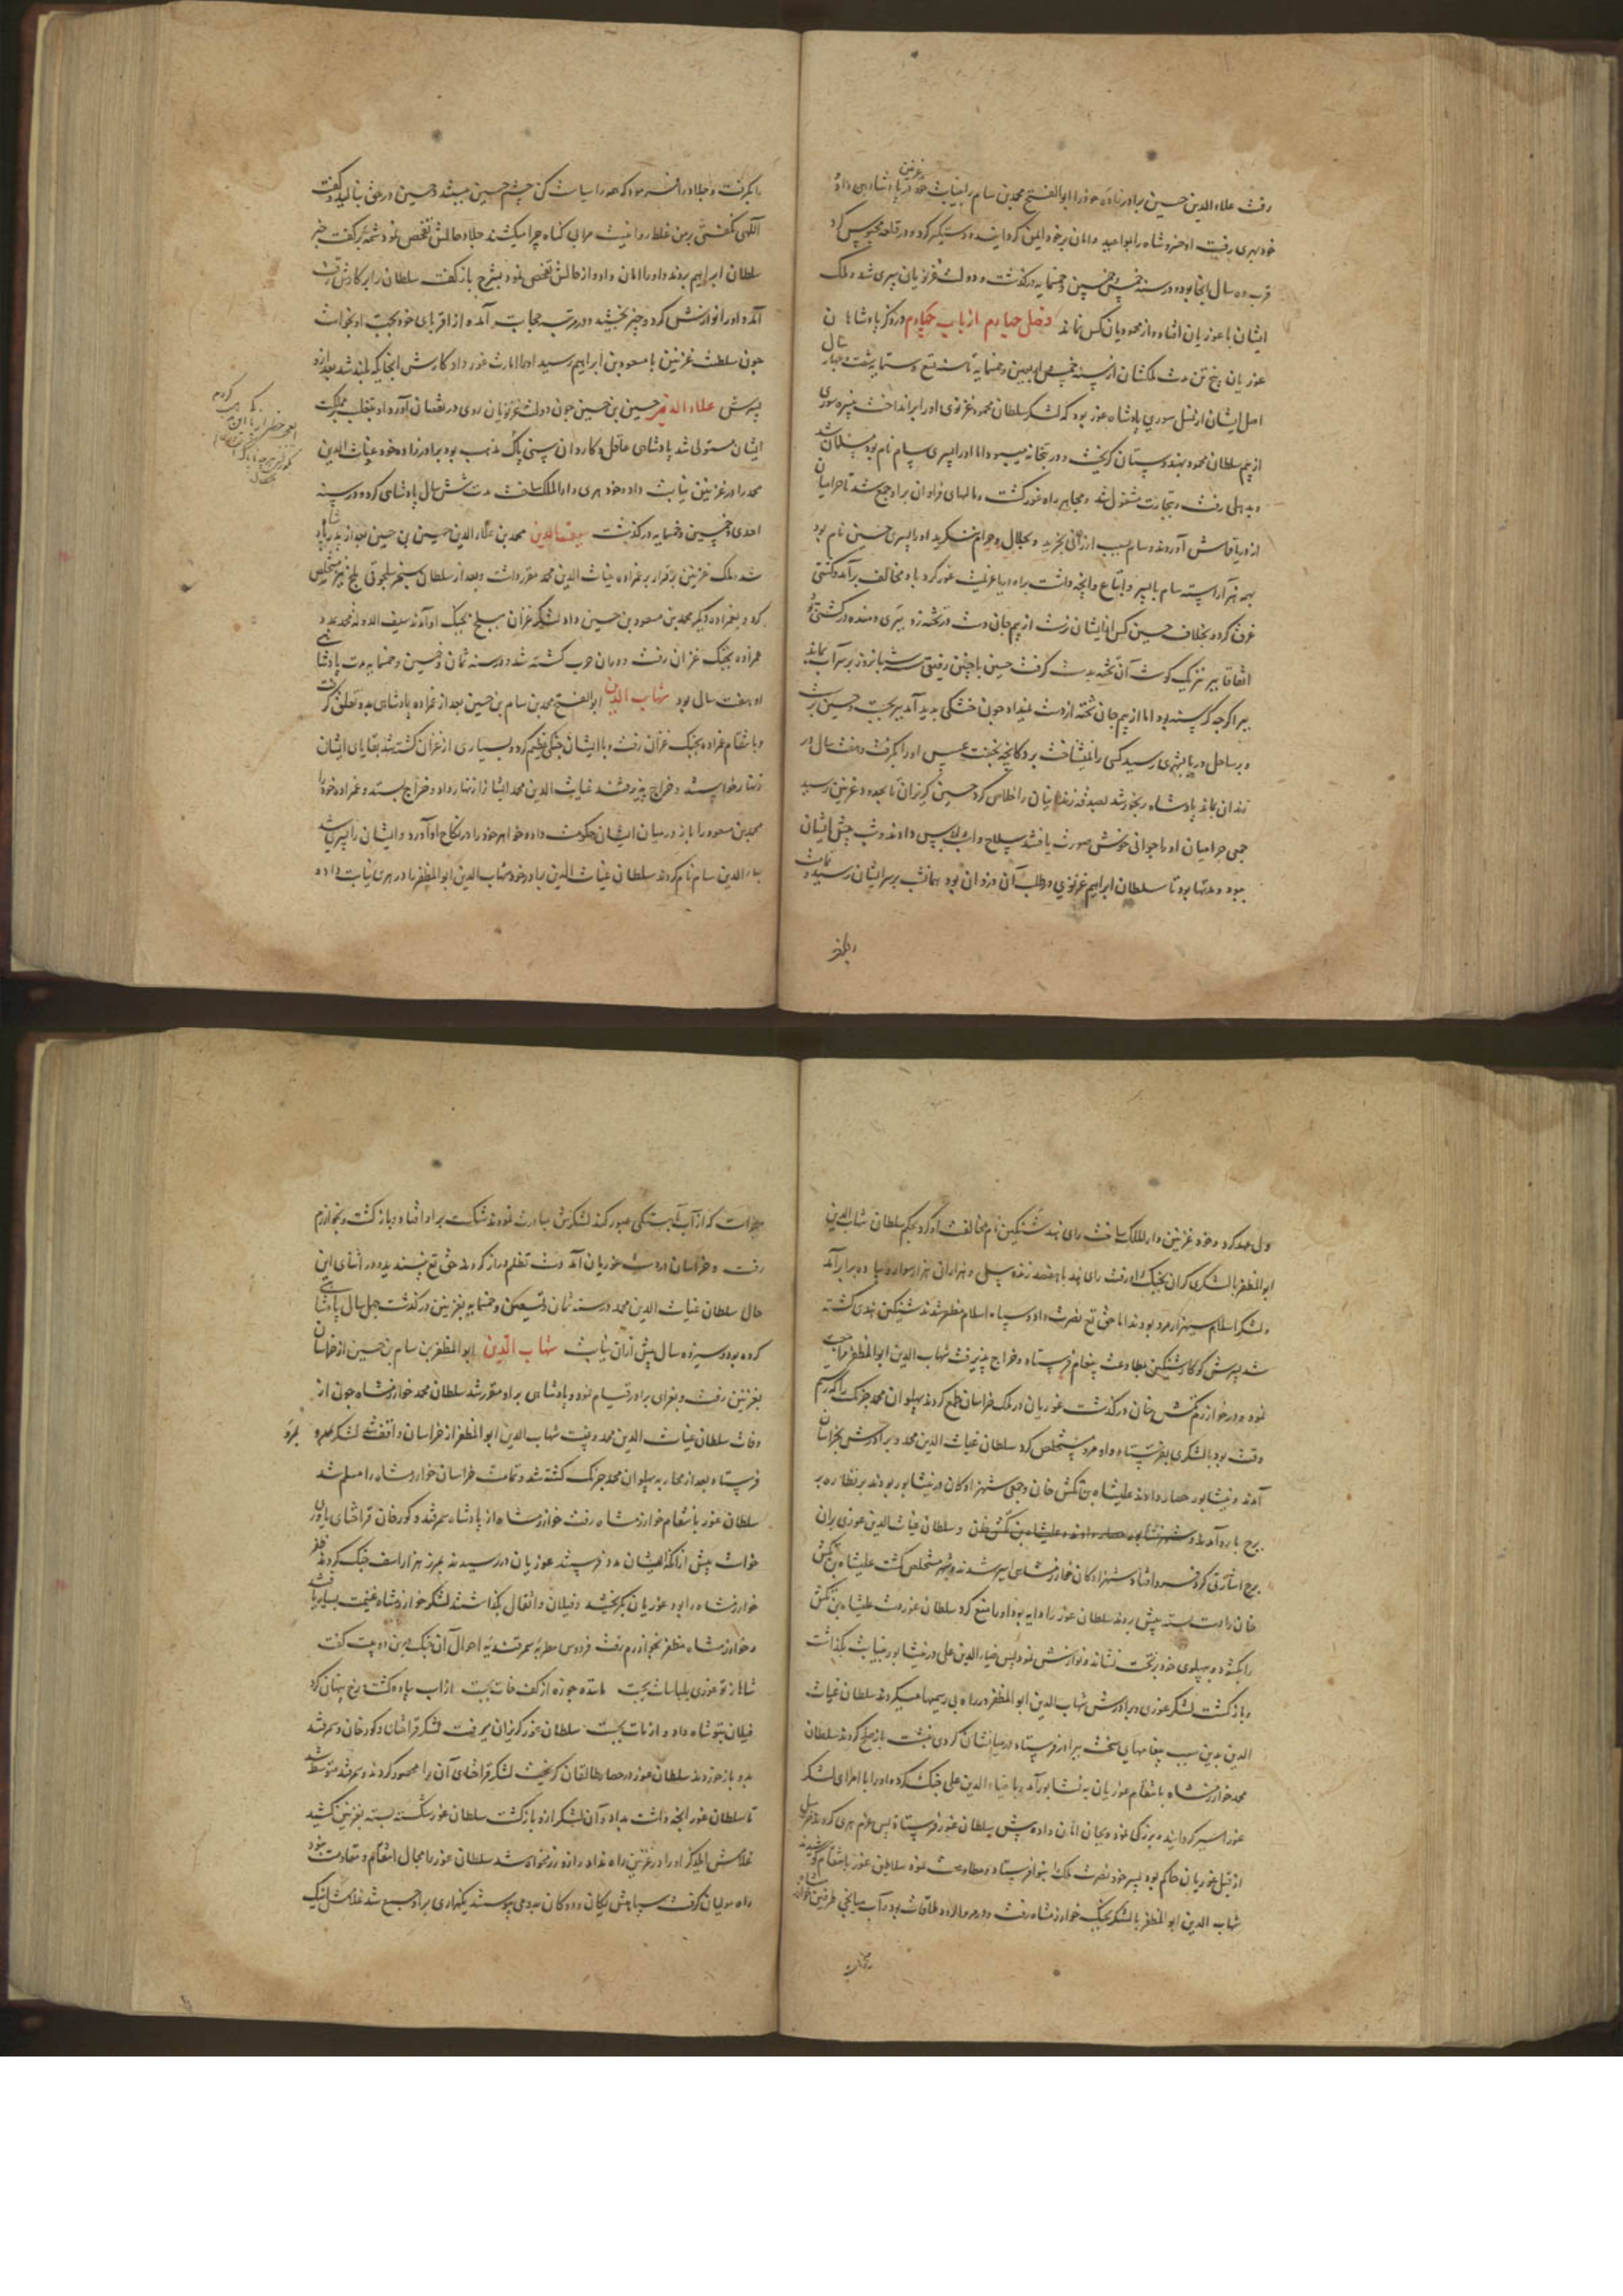 رفت علاء الدین حسین برادرزاده خود را ابوالفتح محمد بن سام را بنیابت خود در غزنین پادشاهی داد
خود بهری رفت او خسرو شاه را بمواعید و امان بر خود ایمن گردانیده و دستگیر کرد و در قلعه محبوس کرد
قرب ده سال انجا بود و در سنه خمس و خمسین و خمسمایه درگذشت و دولت غزنویان سپری شد و ملک
ایشان با غوریان افتاد و از محمودیان کس نماند فصل چهارم از باب چهارم در ذکر پادشاهان
غوریان پنج تن مدت ملکشان از سنه خمس و اربعین و خمسمایه تا سنه تسع و ستمایه شصت و چهار سال
اصل ایشان از نسل سوری پادشاه غور بود که لشکر سلطان محمود غزنوی او را برانداخت نبیره سوری
از بیم سلطان محمود بهندوستان گریخت و در بتخانه میبود اما او را پسری سام نام بود مسلمان شد
و بدهلی رفت و بتجارت مشغول شد و مالهای فراوان برو جمع شد تا حرامیان
از دریا قماش آوردند و سام بسبب ارزانی بخرید و بحلال و حرام ننگرید او را پسری حسین نام بود
بهمه هنر آراسته سام با پسر و اتباع و آنچه داشت براه دریا عزیمت غور کرد باد مخالف برآمد و کشتی
غرق کرد و بخلاف حسین کس از ایشان نرست از بیم جان دست در تخته زد ببری درنده در کشتی بود
اتفاقا ببر نیز یک گوشت آن تخته بدست گرفت حسین با چنین رفیقی سه شبانروز بر سر آب بماند
ببر اگرچه گرسنه بود اما از بیم جان تخته از دست نمیداد چون خشکی پدید آمد ببر بجست و حسین برست
و بر ساحل دریا بشهری رسید کسی را نمیشناخت بر دکانچه بخفت عسس او را بگرفت و هفت سال در
زندان بماند پادشاه رنجور شد بصدقه زندانیان را خلاص کرد حسین گریزان تا بحدود غزنین رسید
جمعی حرامیان او را جوانی خوش صورت یافتند سلاح و اسب و لباس دادند و شب پیش ایشان
ببود و مدتها بود تا سلطان ابراهیم غزنوی در طلب آن دزدان بود همانشب بر سر ایشان رسید و تمامت
را بگرفت و جلاد را فرمود که همه را سیاست کن چشم حسین ببستند حسین در حق بنالید و گفت
الهی گفتی بر من غلط روا نیست مرا بی گناه چرا میکشند جلاد حالش تفحص نمود شمه برگفت خبر
سلطان ابراهیم بردند و او را امان داد و از حالش تفحص نمود بشرح بازگفت سلطان را بر کارش رقت
آمد و او را نوازش کرد و چیز بخشید و در مرتبه حجابت آمد از اقربای خود بجهت او بخواست
چون سلطنت غزنین با مسعود بن ابراهیم رسید او را امارت غور داد کارش انجایگه بلند شد بعد از و
پسرش علاء الدین حسین بن حسین چون دولت غزنویان روی در نقصان آورد او بتغلب بر مملکت
ایشان مستولی شد پادشاهی عاقل و کاردان سنی پاک مذهب بود برادرزاده خود غیاث الدین
محمد را در غزنین نیابت داد و خود هری دارالملک ساخت مدت شش سال پادشاهی کرد و در سنه
احدی و خمسین و خمسمایه درگذشت سیف الدین محمد بن علاء الدین حسین بن حسین بعد از پدر پادشاه
شد و ملک غزنین برقرار بر عمزاده غیاث الدین محمد مقرر داشت و بعد از سلطان سنجر سلجوقی بلخ نیز مستخلص
کرد و بعمزاده دیگر محمد بن مسعود بن حسین داد لشکر غزان ببلخ بجنگ او آمدند سیف الدوله محمد بمدد
عمزاده بجنگ غزان رفت و در ان حرب کشته شد در سنه ثمان و خمسین و خمسمایه مدت پادشاهی
او هفت سال بود شهاب الدین ابوالفتح محمد بن سام بن حسین بعد از عمزاده پادشاهی بدو تعلق گرفت
و بانتقام عمزاده بجنگ غزان رفت و با ایشان جنگی عظیم کرد و بسیاری از غزان کشته شد بقایای ایشان
زنهار خواستند و خراج پذیرفتند غیاث الدین محمد ایشانرا زنهار داد و خراج بستد و عمزاده خود را
محمد بن مسعود را باز در میان ایشان حکومت داد و خواهر خود را در نکاح او آورد و ایشان را پسری شد
بهاء الدین سام نام کردند سلطان غیاث الدین برادر خود شهاب الدین ابوالمظفر را در هری نیابت داد و
ولی عهد کرد و خود غزنین دارالملک ساخت رای هند شنکین نام مخالفت او کرد بحکم سلطان شهاب الدین
ابوالمظفر با لشکری گران بجنگ او رفت رای هند با هفصد زنده پیل و هزاران هزار سوار و پیاده برابر آمد
و لشکر اسلام سی هزار مرد بودند اما حق تع نصرت داد و سپاه اسلام مظفر شدند شنکین هندی کشته
شد پسرش کوکار شنکین بمطاوعت پیغام فرستاد و خراج پذیرفت شهاب الدین ابوالمظفر مراجعت
نمود و در خوارزم تکش خان درگذشت غوریان در ملک خراسان طمع کردند پهلوان محمد خرنک را که رستم
وقت بود با لشکری بفرستاد و او مرو مستخلص کرد سلطان غیاث الدین محمد و برادرش بخراسان
آمدند و نیشابور حصار دادند علیشاه بن تکش خان و جمعی شهزادگان در نیشابور بودند بر نظاره بر
برج باره آمدند و سلطان غیاث الدین غوری بران
برج اشارتی کرد فرو افتاد و شهزادگان خوارزمشاهی اسیر شدند و شهر مستخلص گشت علیشاه بن تکش
خان را دست بسته پیش بردند سلطان غور را دایه بود او را منع کرد سلطان غور دست علیشاه بن تکش
را بگشود و بپهلوی خود بر تخت نشاند و نوازش نمود پس ضیاء الدین علی در نیشابور بنیابت بگذاشت
و بازگشت لشکر غوری و برادرش شهاب الدین ابوالمظفر در راه بی رسمیها میکردند سلطان غیاث
الدین بدین سبب پیغامهای سخت ببرادر فرستاد و در میان ایشان گردی نشست باز صلح کردند سلطان
محمد خوارزمشاه بانتقام غوریان به نیشابور آمد و با ضیاء الدین علی جنگ کرد و او را با امرای لشکر
غور اسیر گردانید و بزرگی نمود و بجان امان داد و پیش سلطان غور فرستاد پس عزم هری کرد
از قبل غوریان حاکم بود پسر خود نصرت ملک بنوا فرستاد و مطاوعت نمود سلاطین غور بانتقام کوشیدند
شهاب الدین ابوالمظفر با لشکر بجنگ خوارزمشاه رفت و در مروالرود ملاقات بود
خواست که از آب بآهستگی عبور کند لشکرش مبادرت نمودند شکست بر او افتاد و بازگشت و بخوارزم
رفت و خراسان در دست غوریان آمد دست تظلم دراز کردند حق تع نپسندید و در اثنای این
حال سلطان غیاث الدین محمد در سنه ثمان و تسعین و خمسمایه بغزنین درگذشت چهل سال پادشاهی
کرده بود و سیزده سال پیش ازان نیابت شهاب الدین ابوالمظفر بن سام بن حسین از خراسان
بغزنین رفت و بعزای برادر قیام نمود و پادشاهی برو مقرر شد سلطان محمد خوارزمشاه چون از
وفات سلطان غیاث الدین محمد و غیبت شهاب الدین ابوالمظفر از خراسان واقف شد لشکر بمرو
فرستاد بعد از محاربه پهلوان محمد خرنک کشته شد و تمامت خراسان خوارزمشاه را مسلم شد
سلطان غور بانتقام خوارزمشاه رفت خوارزمشاه از پادشاه سمرقند و کورخان قراختای یاوری
خواست پیش از انکه ایشان مدد فرستند غوریان در رسیدند بمرز هزاراسف جنگ کردند ظفر
خوارزمشاه را بود غوریان بگریختند و فیلان و اثقال بگذاشتند لشکر خوارزمشاه غنیمت بسیار یافتند
و خوارزمشاه مظفر بخوارزم رفت فردوس مطربه سمرقندیه احوال آن جنگ درین دو بیت گفت
شاها ز تو غوری بلباسات بجست مانده جوزه از کف خات بجست از اسب پیاده گشت و رخ پنهان کرد
فیلان بتو شاه داد و از مات بجست سلطان غور گریزان میرفت لشکر قراختای و کورخان و سمرقند
بدو باز خوردند سلطان غور در حصار طالقان گریخت لشکر قراختای آن را محصور کردند و سمرقند متوسط شد
تا سلطان غور انچه داشت بداد و آن لشکر ازو بازگشت سلطان غور شکسته بسته بغزنین کشید
غلامش ایلدکز او را در غزنین راه نداد و ازو رزمخواه شد سلطان غور را مجال انتقام و مقاومت نبود
راه مولتان گرفت سپاهش یگان و دوگان بدو می پیوستند یکهزاری برو جمع شد غلامش ایبک